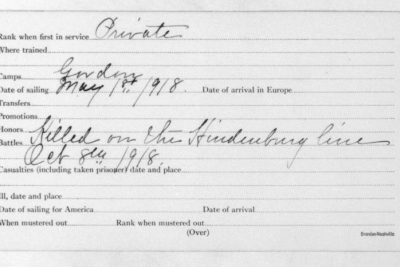 Rank when first in service Private
Where trained
Camps Gordon
Date of sailing May 1st 1918. Date of arrival in Europe
Transfers
Promotions
Honors
Battles Killed on the Hindenburg line
Oct 8th 1918.
Casualties (including taken prisoner) date and place
Ill, date and place
Date of sailing for America Date of arrival
When mustered out Rank when mustered out
(Over)